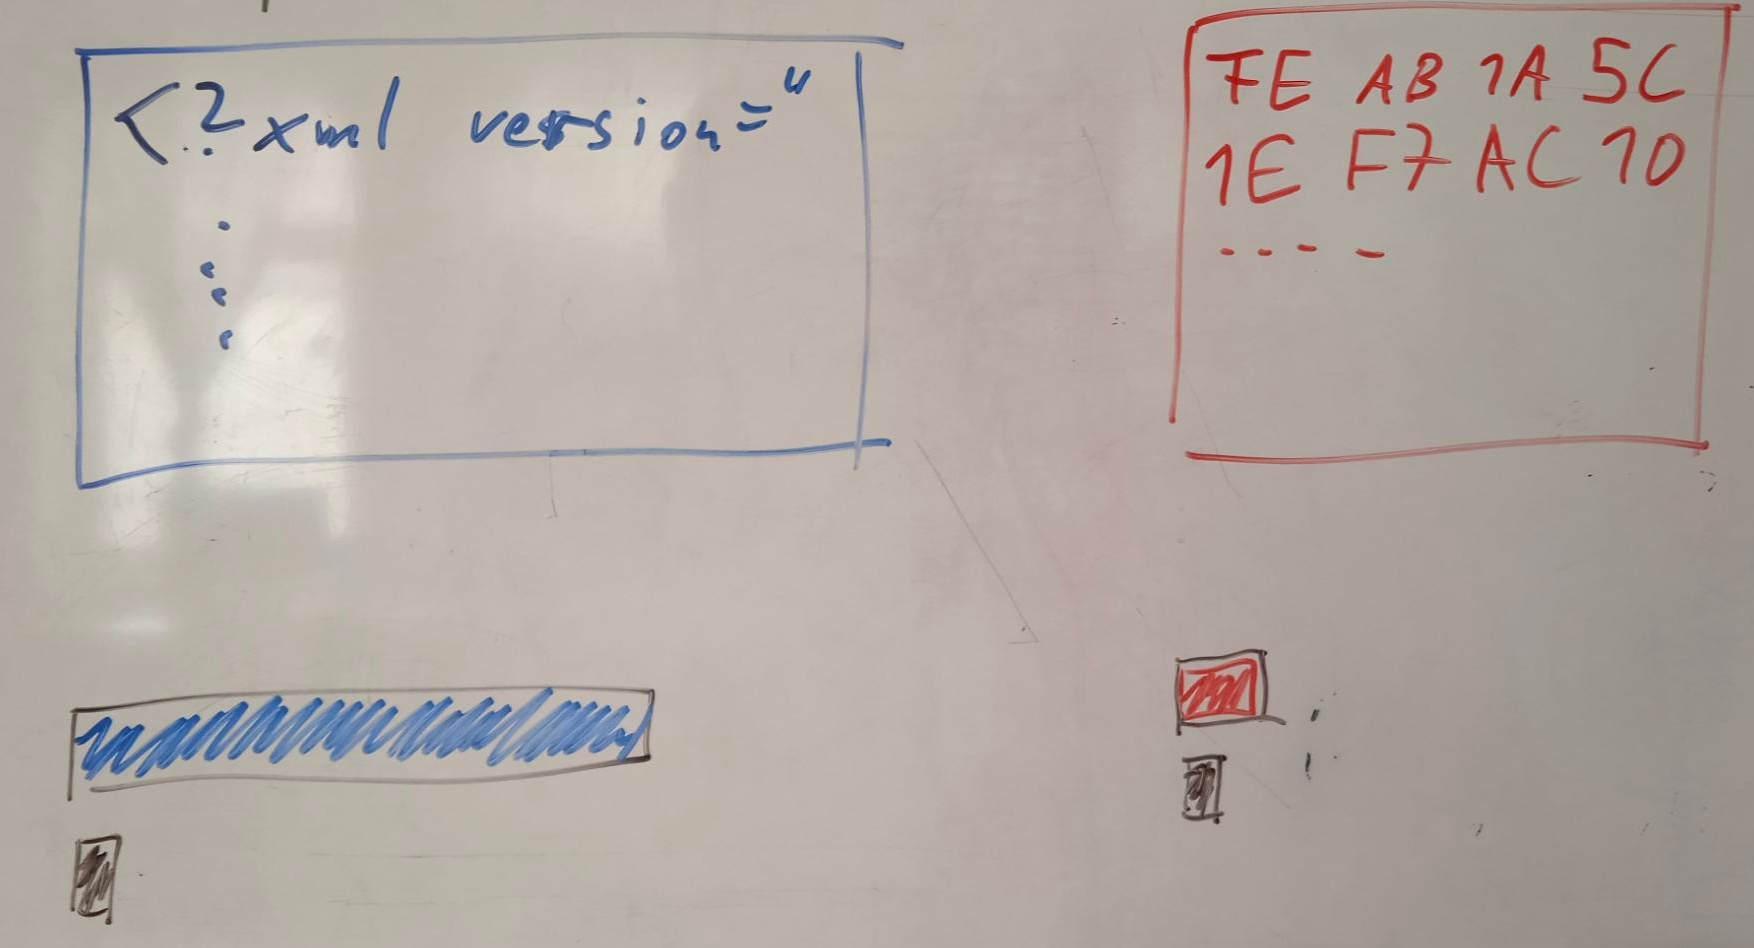 <?xml version="
7E AB 1A 5C
1E F7 AC 10